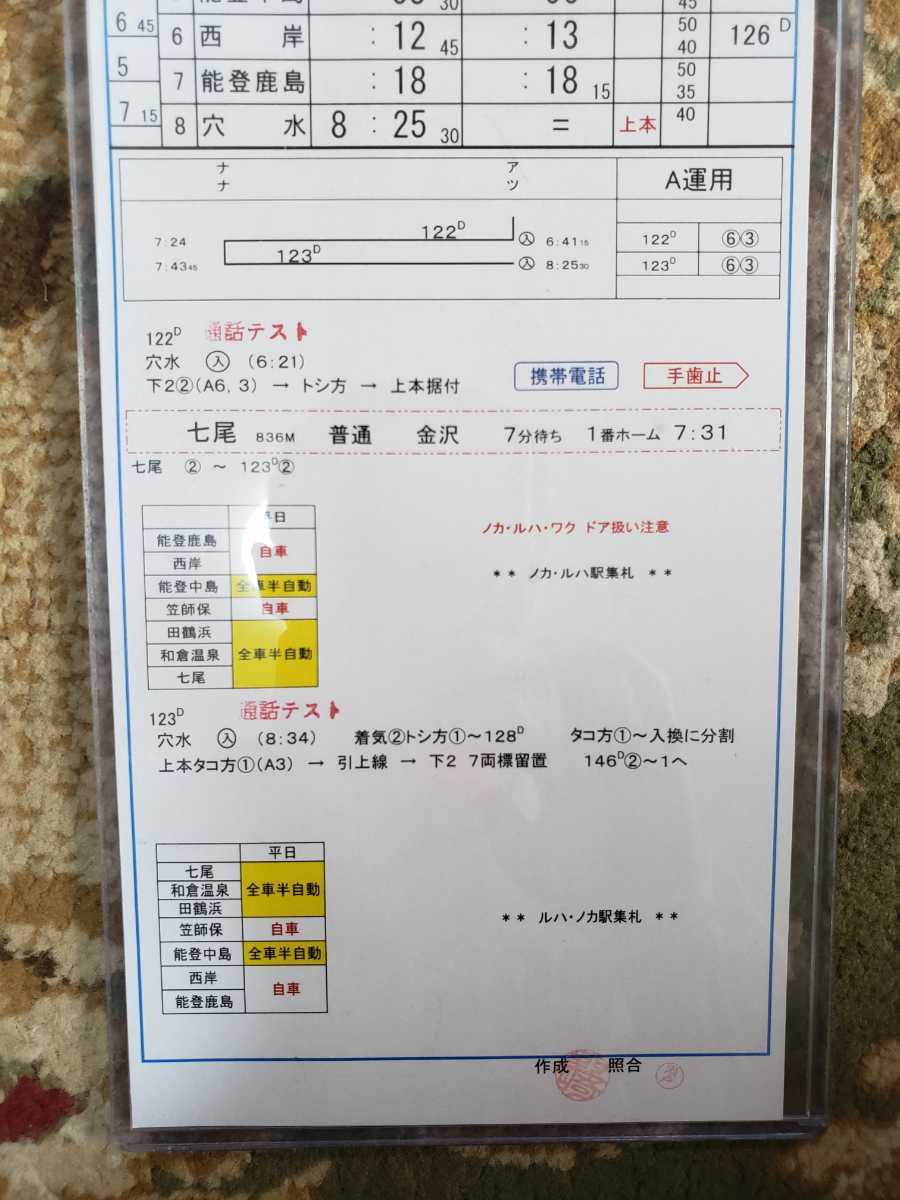 6 45
5
7 15
45
6 西岸 : 12 45 : 13 50 40 126D
7 能登鹿島 : 18 : 18 15 50 35
8 穴水 8 : 25 30 = 上本 40
ナナ アツ A運用
7:24 122D 入 6:41 15 122D ⑥③
7:43 45 123D 入 8:25 30 123D ⑥③
122D 通話テスト
穴水 入 (6:21)
下2②(A6, 3) → トシ方 → 上本据付 携帯電話 手歯止
七尾 836M 普通 金沢 7分待ち 1番ホーム 7:31
七尾 ② ～ 123D②
平日
能登鹿島 自車
西岸
能登中島 全車半自動
笠師保 自車
田鶴浜
和倉温泉 全車半自動
七尾
ノカ・ルハ・ワク ドア扱い注意
** ノカ・ルハ駅集札 **
123D 通話テスト
穴水 入 (8:34) 着気②トシ方①～128D タコ方①～入換に分割
上本タコ方①(A3) → 引上線 → 下2 7両標留置 146D②～1へ
平日
七尾
和倉温泉 全車半自動
田鶴浜
笠師保 自車
能登中島 全車半自動
西岸 自車
能登鹿島
** ルハ・ノカ駅集札 **
作成 照合